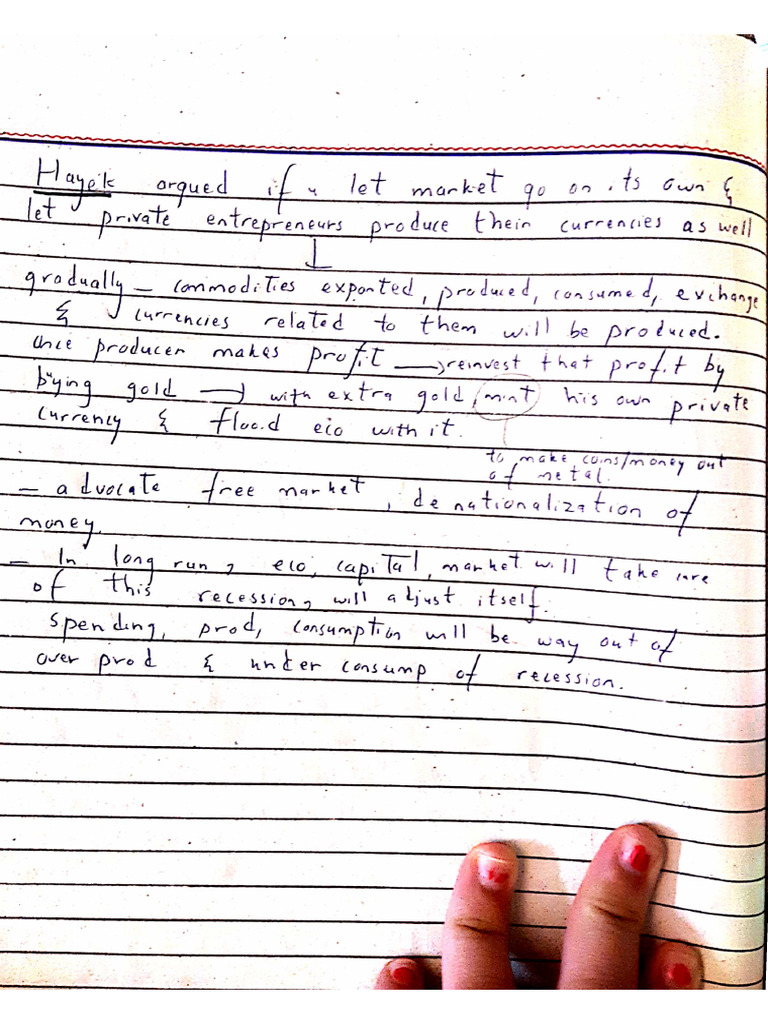 Hayek argued if u let market go on its own &
let private entrepreneurs produce their currencies as well
↓
gradually – commodities exported, produced, consumed, exchange
& currencies related to them will be produced.
Once producer makes profit → reinvest that profit by
buying gold → with extra gold, mint his own private
currency & flood eco with it.
to make coins/money out
of metal.
– advocate free market, denationalization of
money.
– In long run, eco, capital, market will take care
of this recession, will adjust itself.
Spending, prod, consumption will be way out of
over prod & under consump of recession.